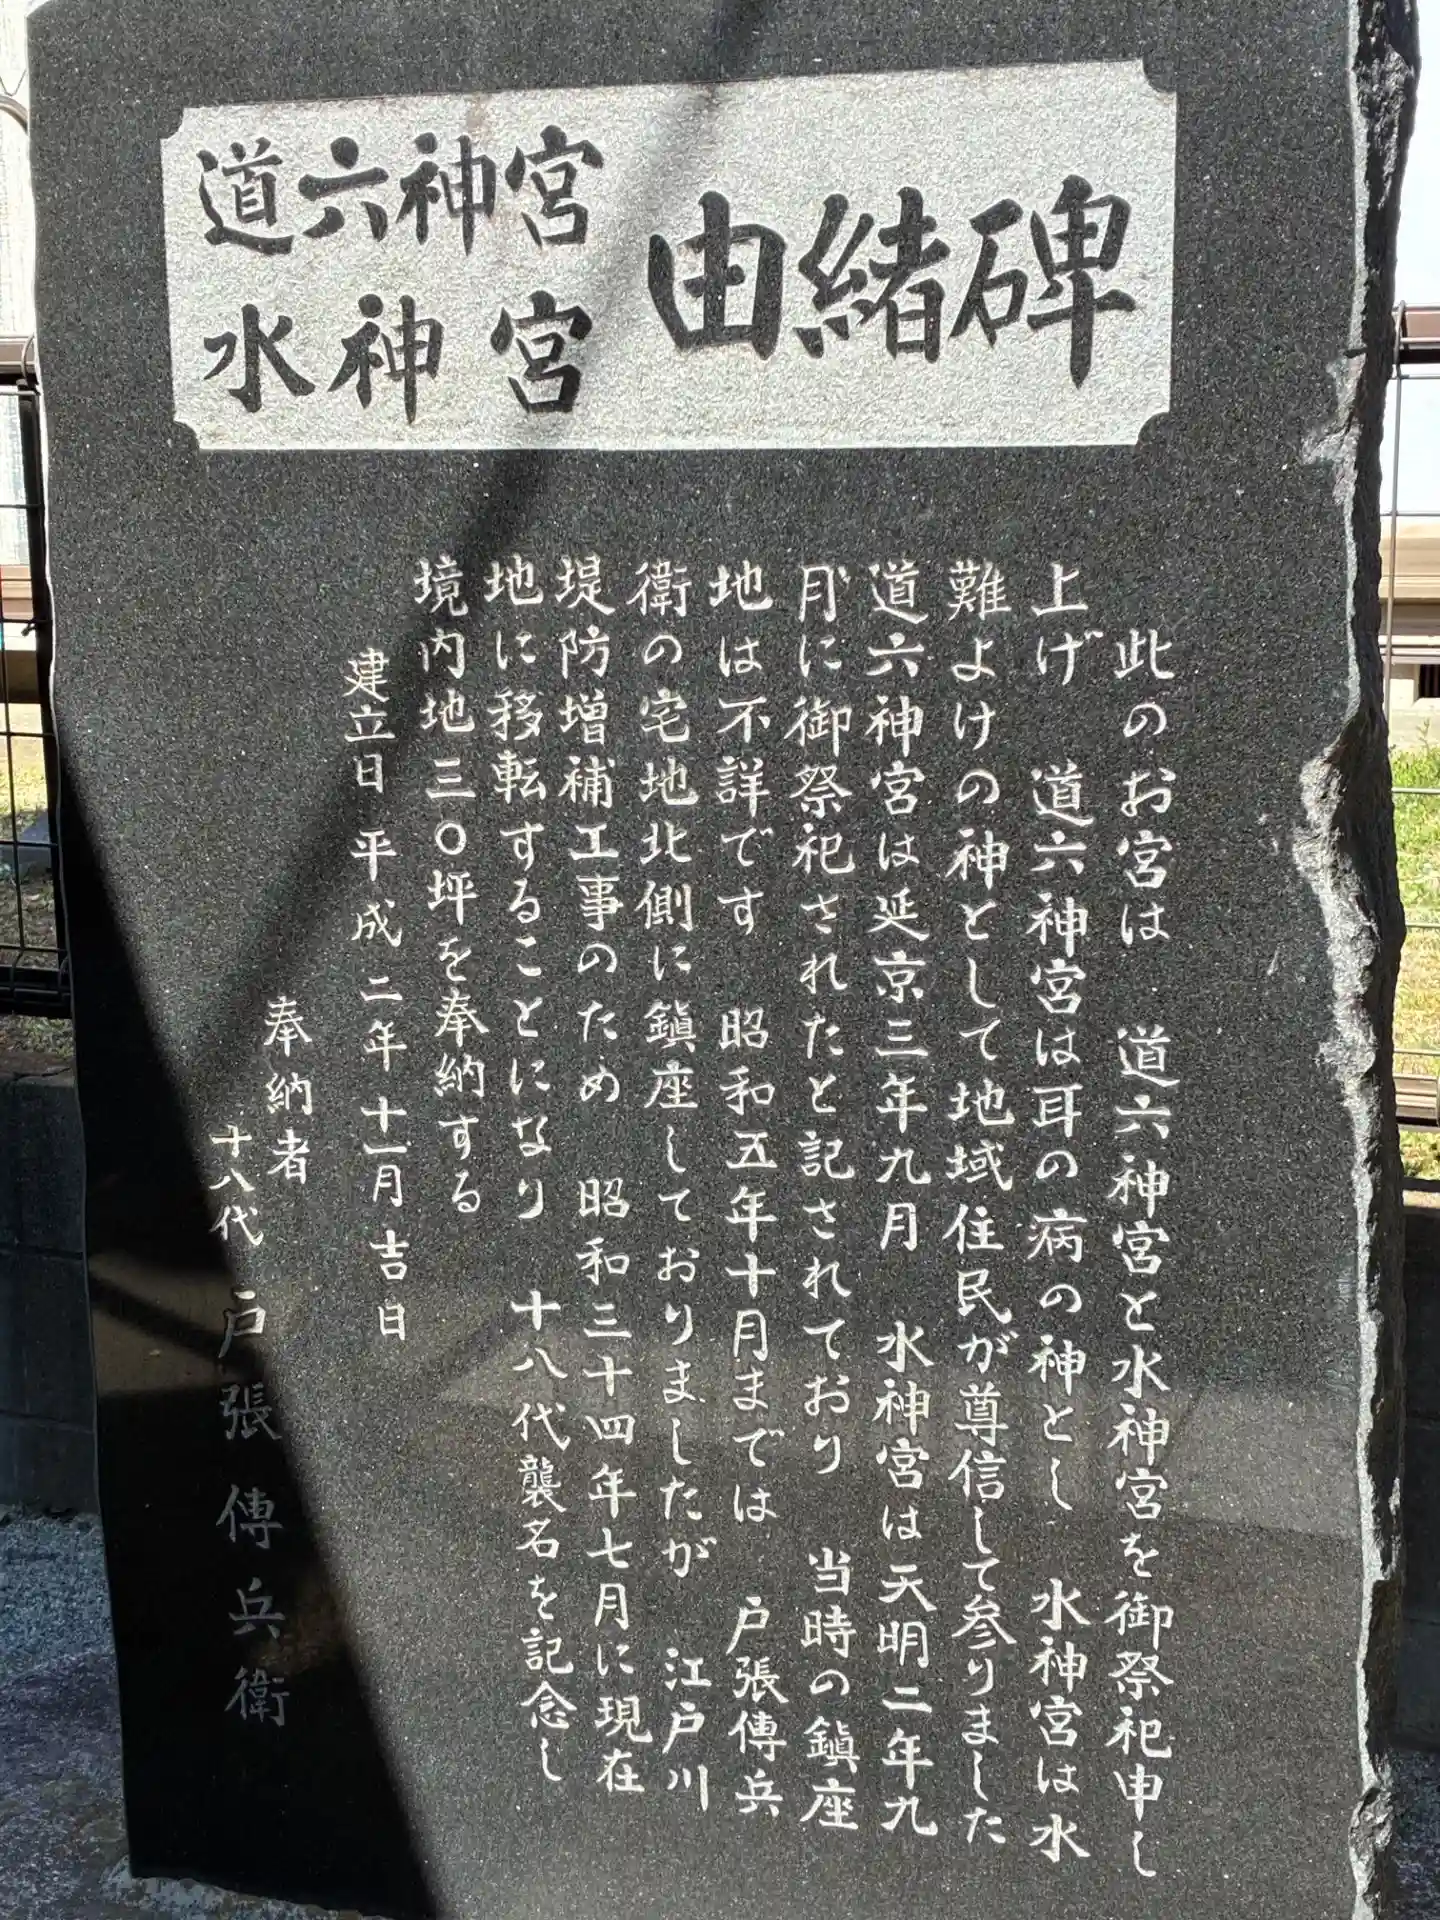 道六神宮
水神宮
由緒碑
此のお宮は　道六神宮と水神宮を御祭祀申し
上げ　道六神宮は耳の病の神とし　水神宮は水
難よけの神として地域住民が尊信して参りました
道六神宮は延京三年九月　水神宮は天明二年九
月に御祭祀されたと記されており　当時の鎮座
地は不詳です　昭和五年十月までは　戸張傳兵
衛の宅地北側に鎮座しておりましたが　江戸川
堤防増補工事のため　昭和三十四年七月に現在
地に移転することになり　十八代襲名を記念し
境内地三〇坪を奉納する
建立日　平成二年十一月吉日
奉納者
十八代　戸張傳兵衛